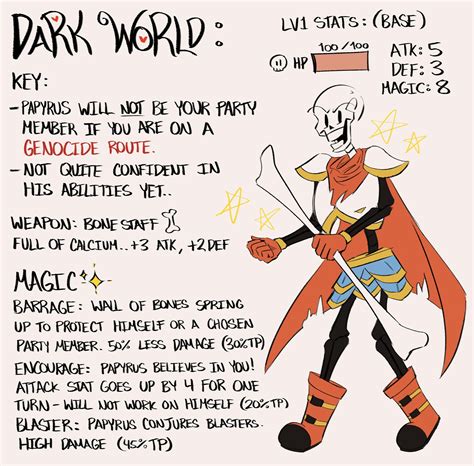 DARK WORLD:
LV1 STATS: (BASE)
100/100
HP
ATK: 5
DEF: 3
MAGIC: 8
KEY:
-PAPYRUS WILL NOT BE YOUR PARTY
MEMBER IF YOU ARE ON A
GENOCIDE ROUTE.
-NOT QUITE CONFIDENT IN
HIS ABILITIES YET..
WEAPON: BONE STAFF
FULL OF CALCIUM..+3 ATK, +2 DEF
MAGIC
BARRAGE: WALL OF BONES SPRING
UP TO PROTECT HIMSELF OR A CHOSEN
PARTY MEMBER. 50% LESS DAMAGE (30%TP)
ENCOURAGE: PAPYRUS BELIEVES IN YOU!
ATTACK STAT GOES UP BY 4 FOR ONE
TURN - WILL NOT WORK ON HIMSELF (20%TP)
BLASTER: PAPYRUS CONJURES BLASTERS.
HIGH DAMAGE (45%TP)